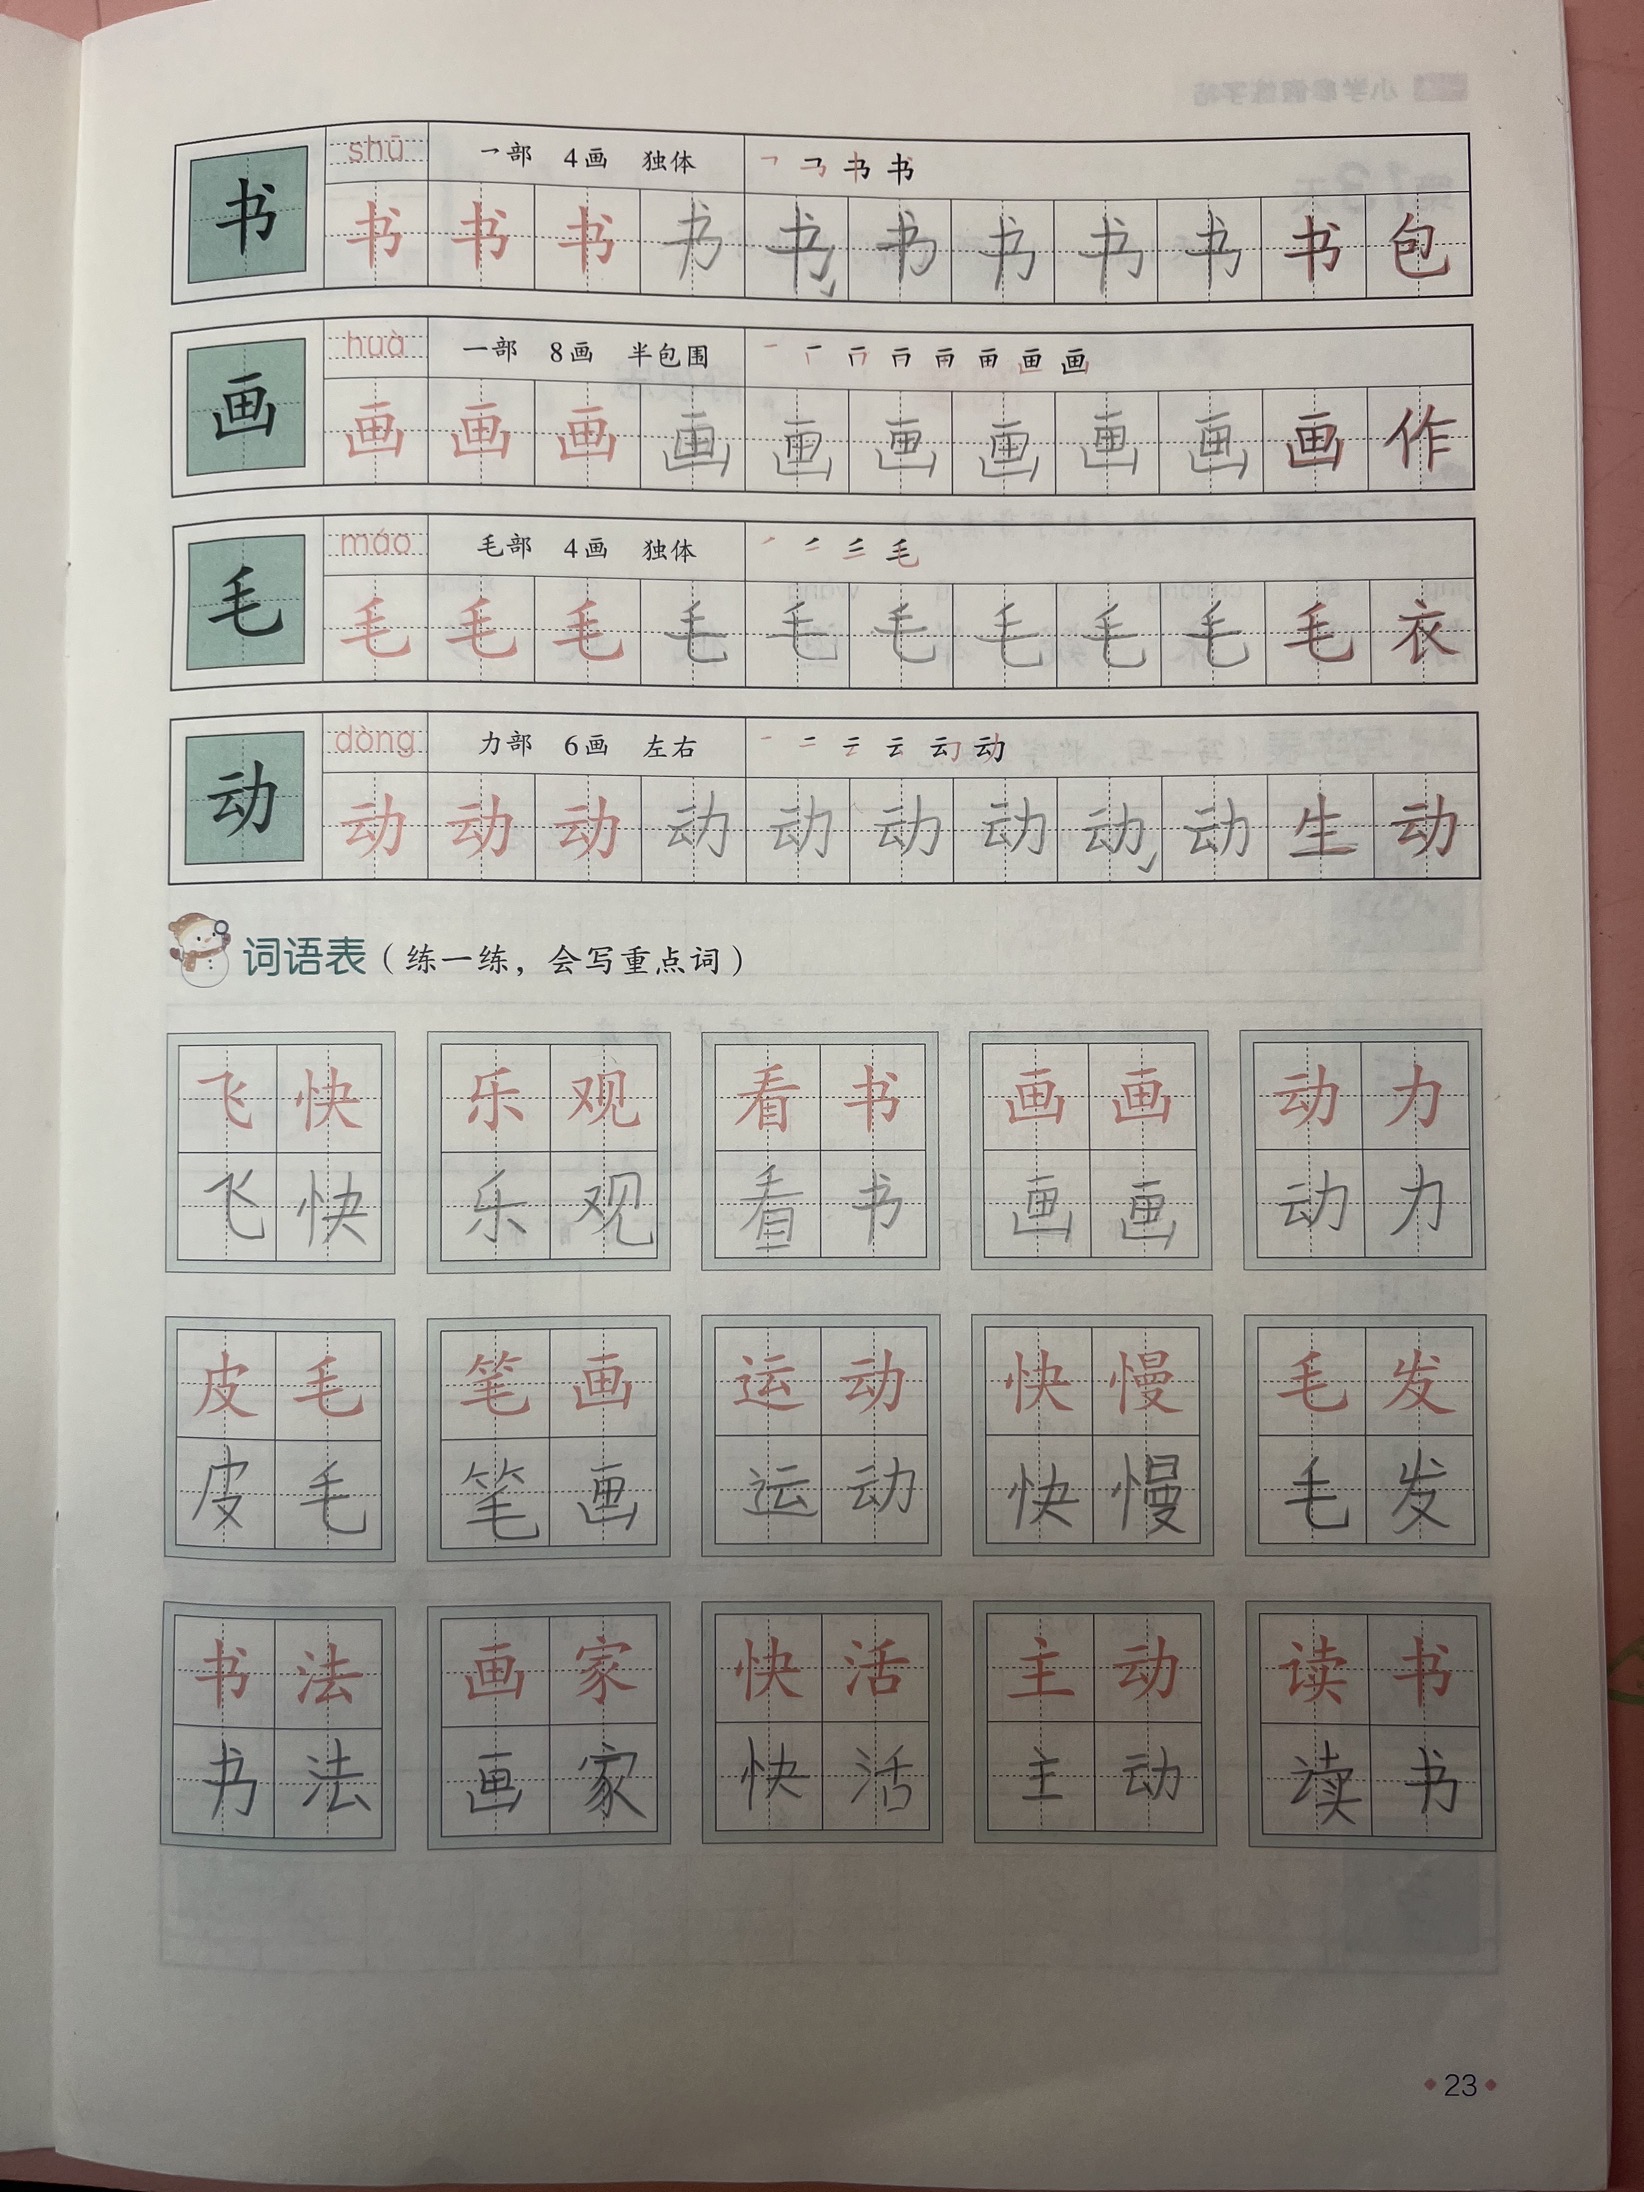 shū 乛部 4画 独体 ㇕ 书 书
书 书 书 书 书 书 书 书 书 书 书 包
huà 一部 8画 半包围 画
画 画 画 画 画 画 画 画 画 画 画 作
máo 毛部 4画 独体 毛
毛 毛 毛 毛 毛 毛 毛 毛 毛 毛 毛 衣
dòng 力部 6画 左右 一 二 云 云 动 动
动 动 动 动 动 动 动 动 动 动 生 动
词语表（练一练，会写重点词）
飞快 乐观 看书 画画 动力
飞快 乐观 看书 画画 动力
皮毛 笔画 运动 快慢 毛发
皮毛 笔画 运动 快慢 毛发
书法 画家 快活 主动 读书
书法 画家 快活 主动 读书
23